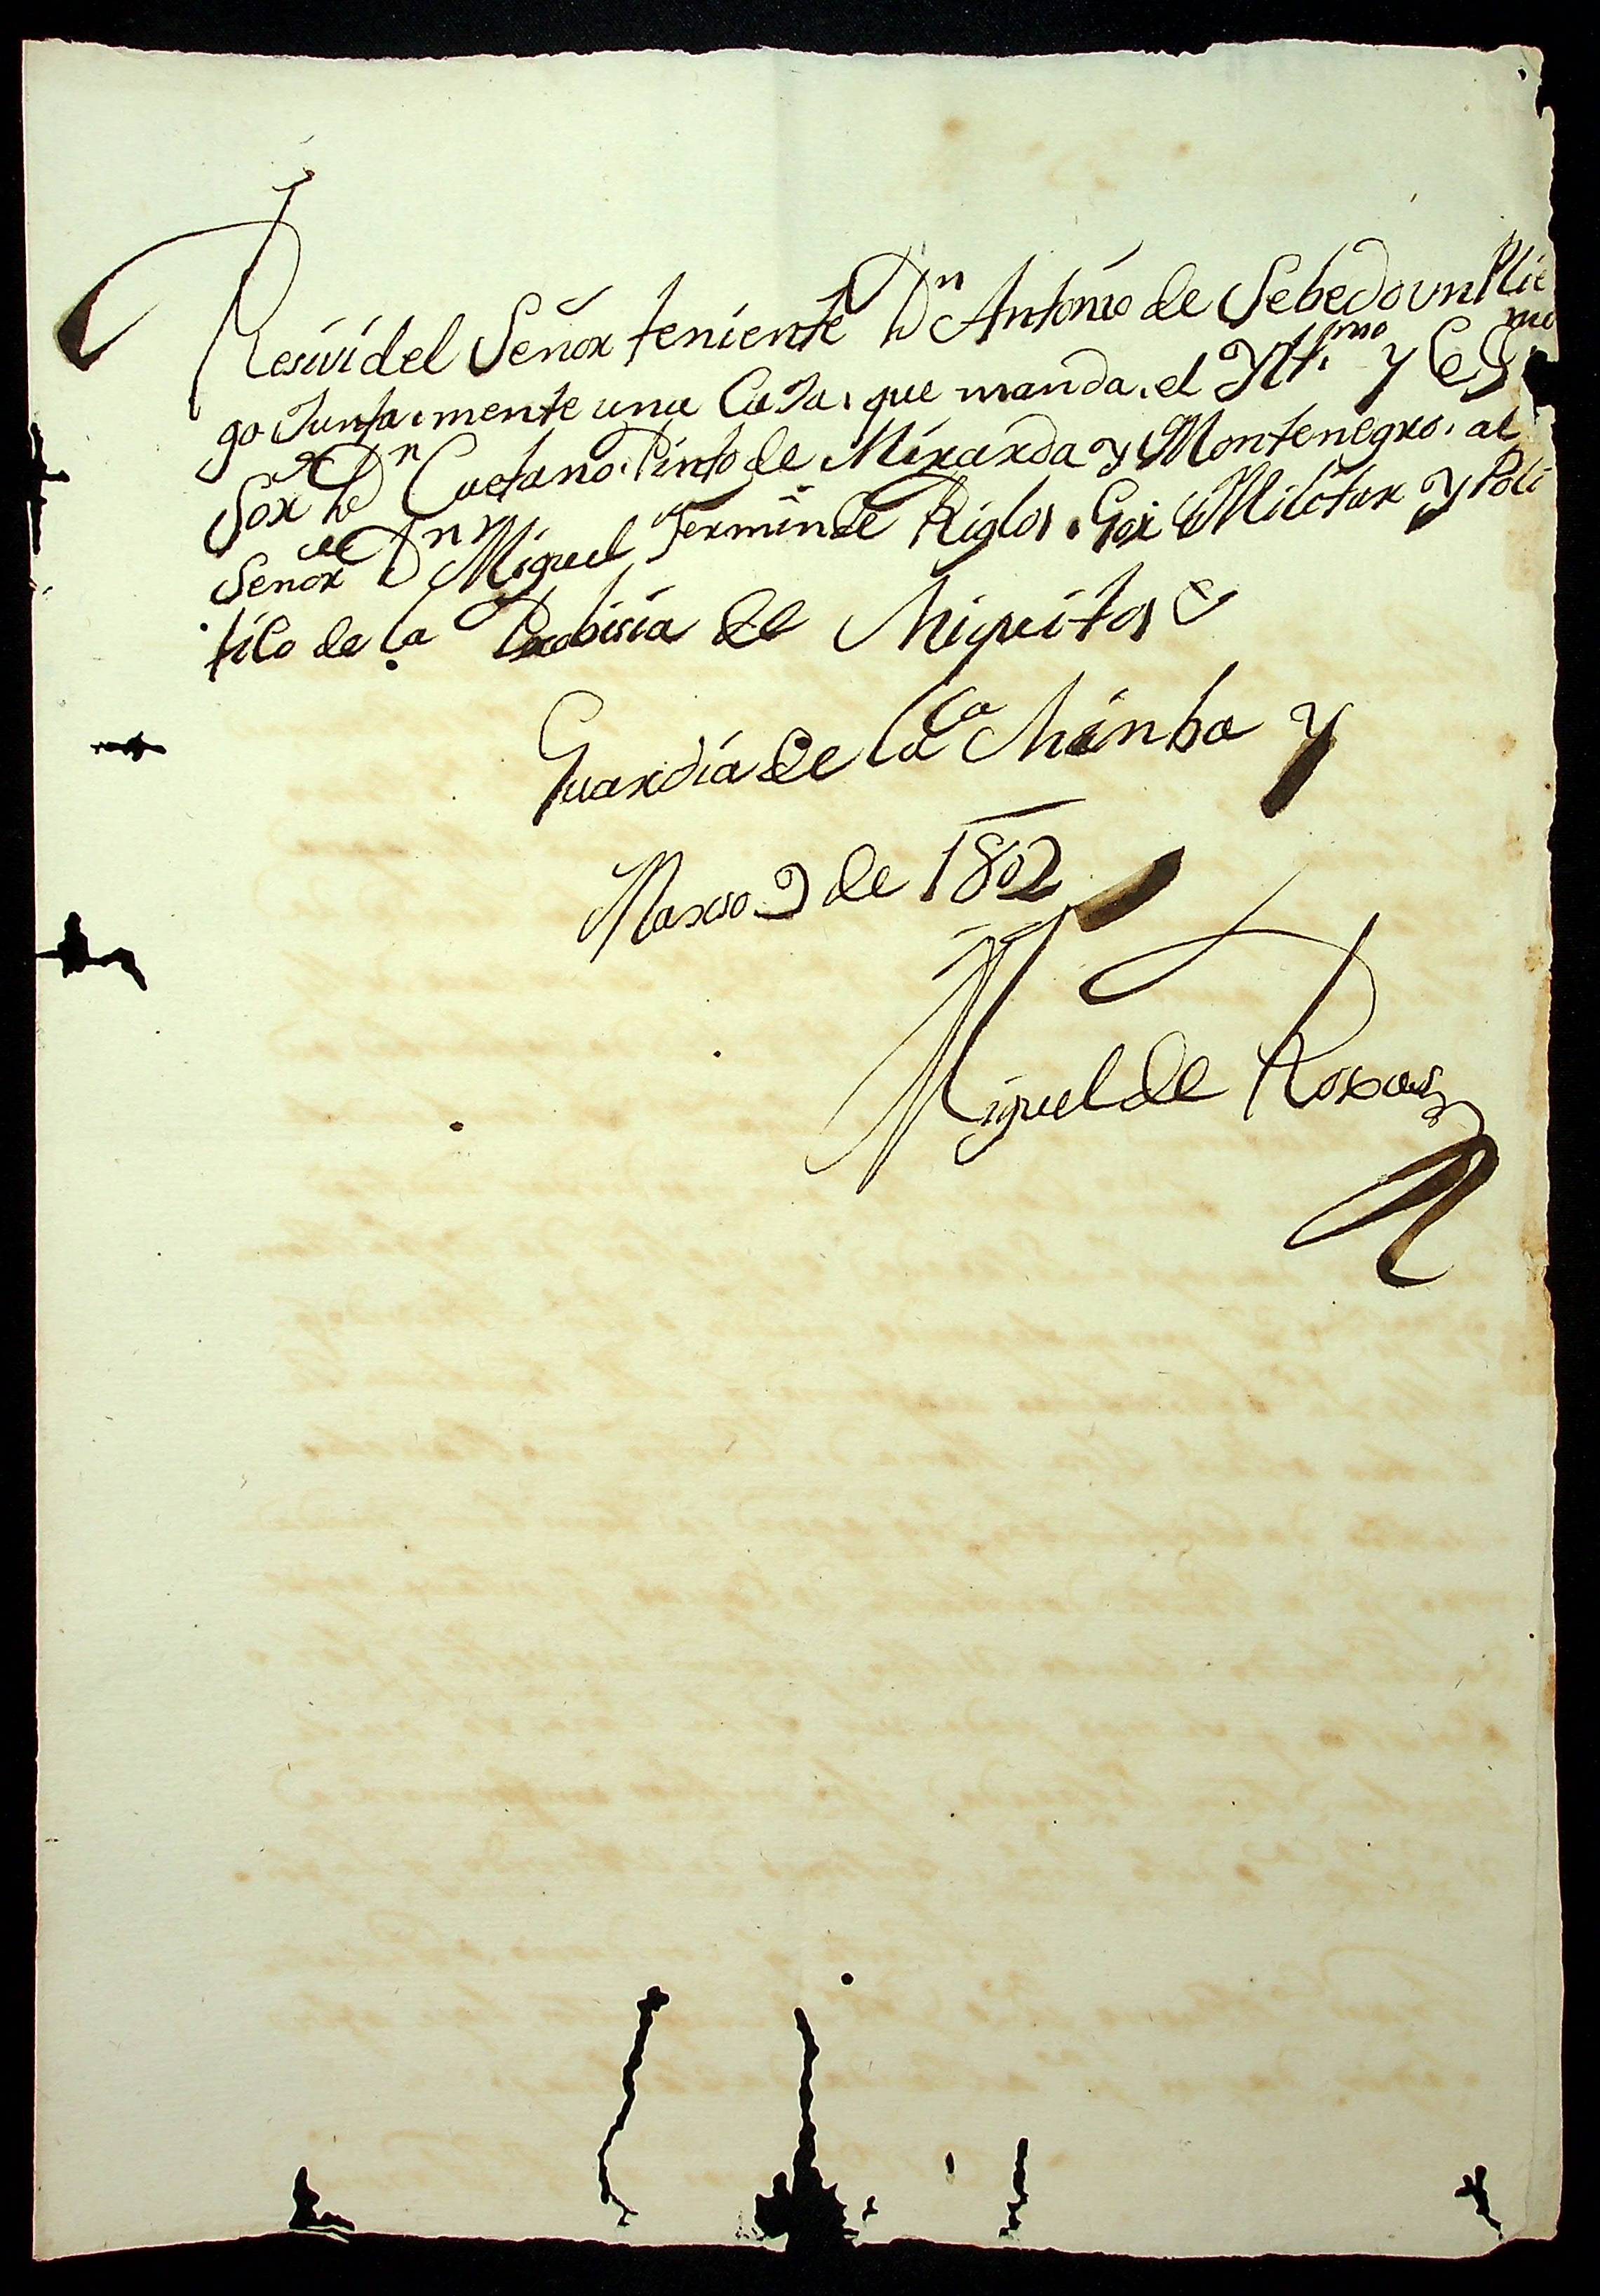 Resivi del Señor teniente Dn Antonio de Sebedo un Plie
go Junta mente una Caja que manda el Yltmo y Ex mo
Sor Dn Caetano Pinto de Miranda y Montenegro al
Señor Dn Miguel Fermin de Riglos Gor Militar y Poli
tico de la Probisia de Chiquitos
Guardia de la Cachimba y
Marso 9 de 1802
Miguel de Roxas